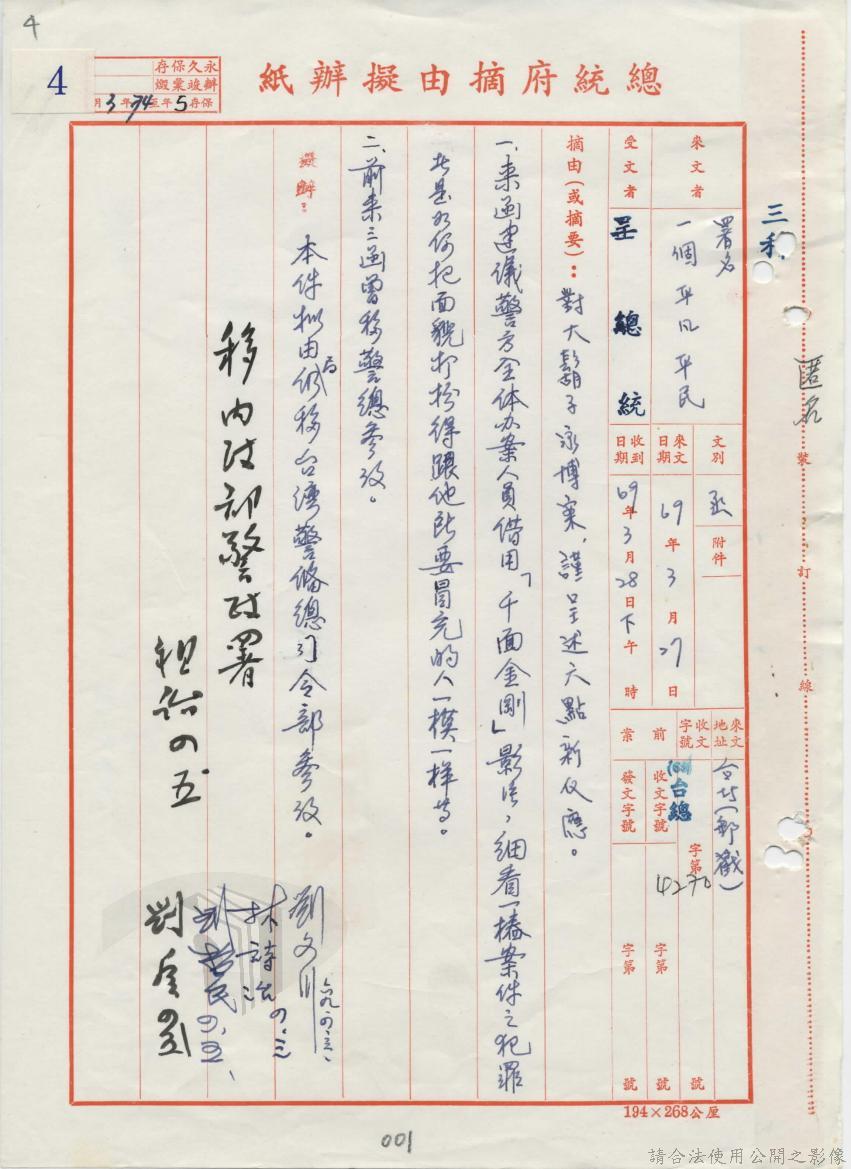 4
4
永久保存
辦竣彙燬
保存5年至74年3月
總統府摘由擬辦紙
三科
匿名
裝
訂
線
來文者
署名
一個平凡平民
受文者
呈 總統
文別
函
附件
來文日期
69年3月27日
收到日期
69年3月28日下午 時
來文地址
台北(郵戳)
收文字號
(69)台總
字第
4270
號
前案
收文字號
字第
號
發文字號
字第
號
摘由(或摘要):對大鬍子家博案,謹呈述六點新反應。
一、來函建議警方全体办案人員借用「千面金剛」影片,細看一樁案件之犯罪
者是如何把面貌打扮得跟他所要冒充的人一模一样等。
二、前来三函曾移警總參攷。
擬辦:
本件擬由局仍移台灣警備總司令部參攷。
移內政部警政署
劉文川 六九、四、三、
林詩治 四、三